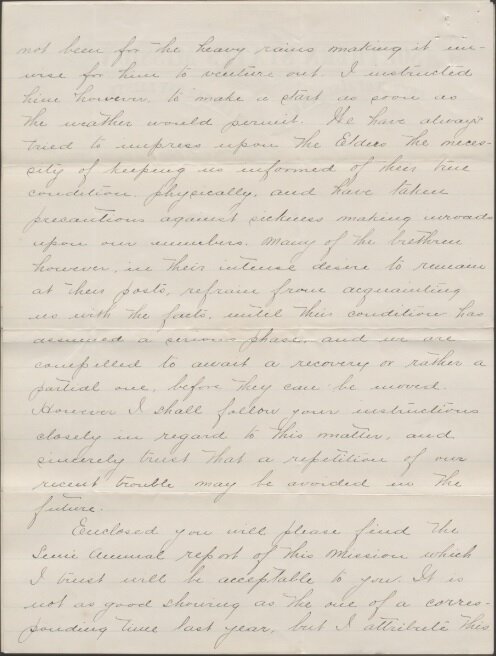 not been for the heavy rains making it un-
wise for him to venture out. I instructed
him however, to make a start as soon as
the weather would permit. We have always
tried to impress upon the Elders the neces-
sity of keeping us informed of their true
condition, physically, and have taken
precautions against sickness making inroads
upon our numbers. Many of the brethren
however, in their intense desire to remain
at their posts, refrain from acquainting
us with the facts, until their condition has
assumed a serious phase, and we are
compelled to await a recovery or rather a
partial one, before they can be moved.
However I shall follow your instructions
closely in regard to this matter, and
sincerely trust that a repetition of our
recent trouble may be avoided in the
future.
Enclosed you will please find the
Semi Annual report of this Mission which
I trust will be acceptable to you. It is
not as good showing as the one of a corres-
ponding time last year, but I attribute this